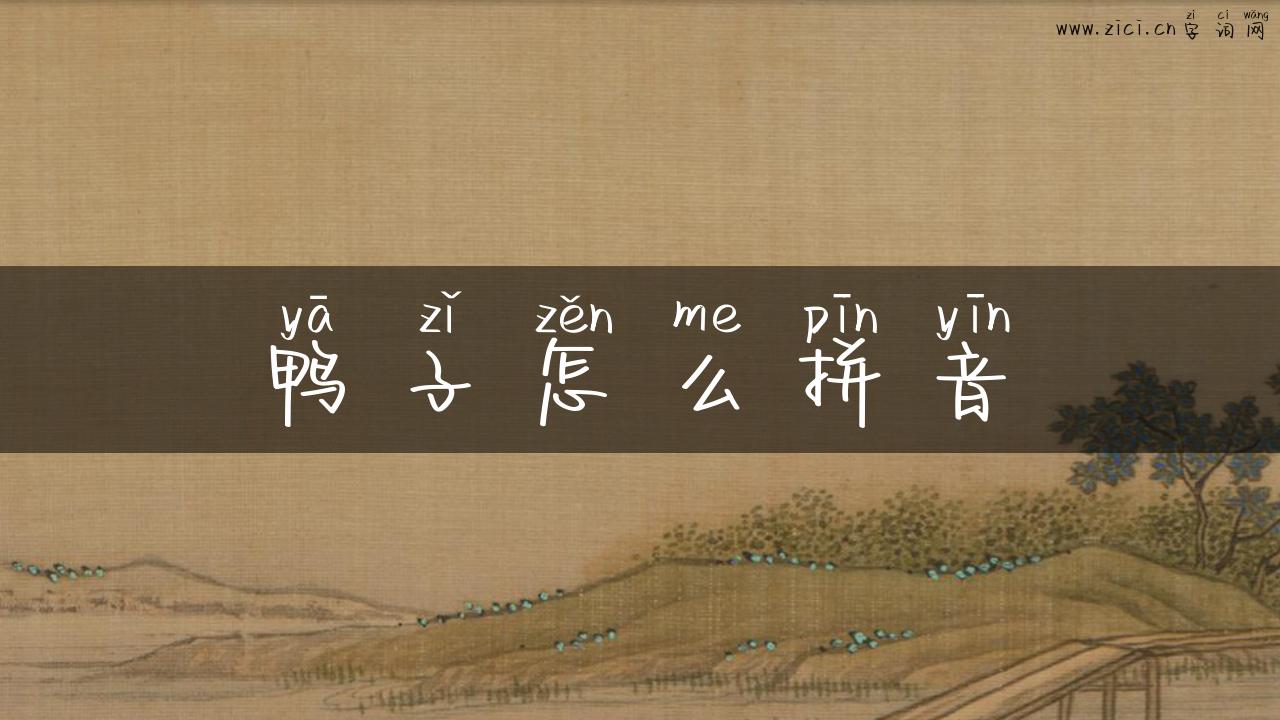 zì cí wǎng
www.zici.cn字词网
yā zǐ zěn me pīn yīn
鸭子怎么拼音